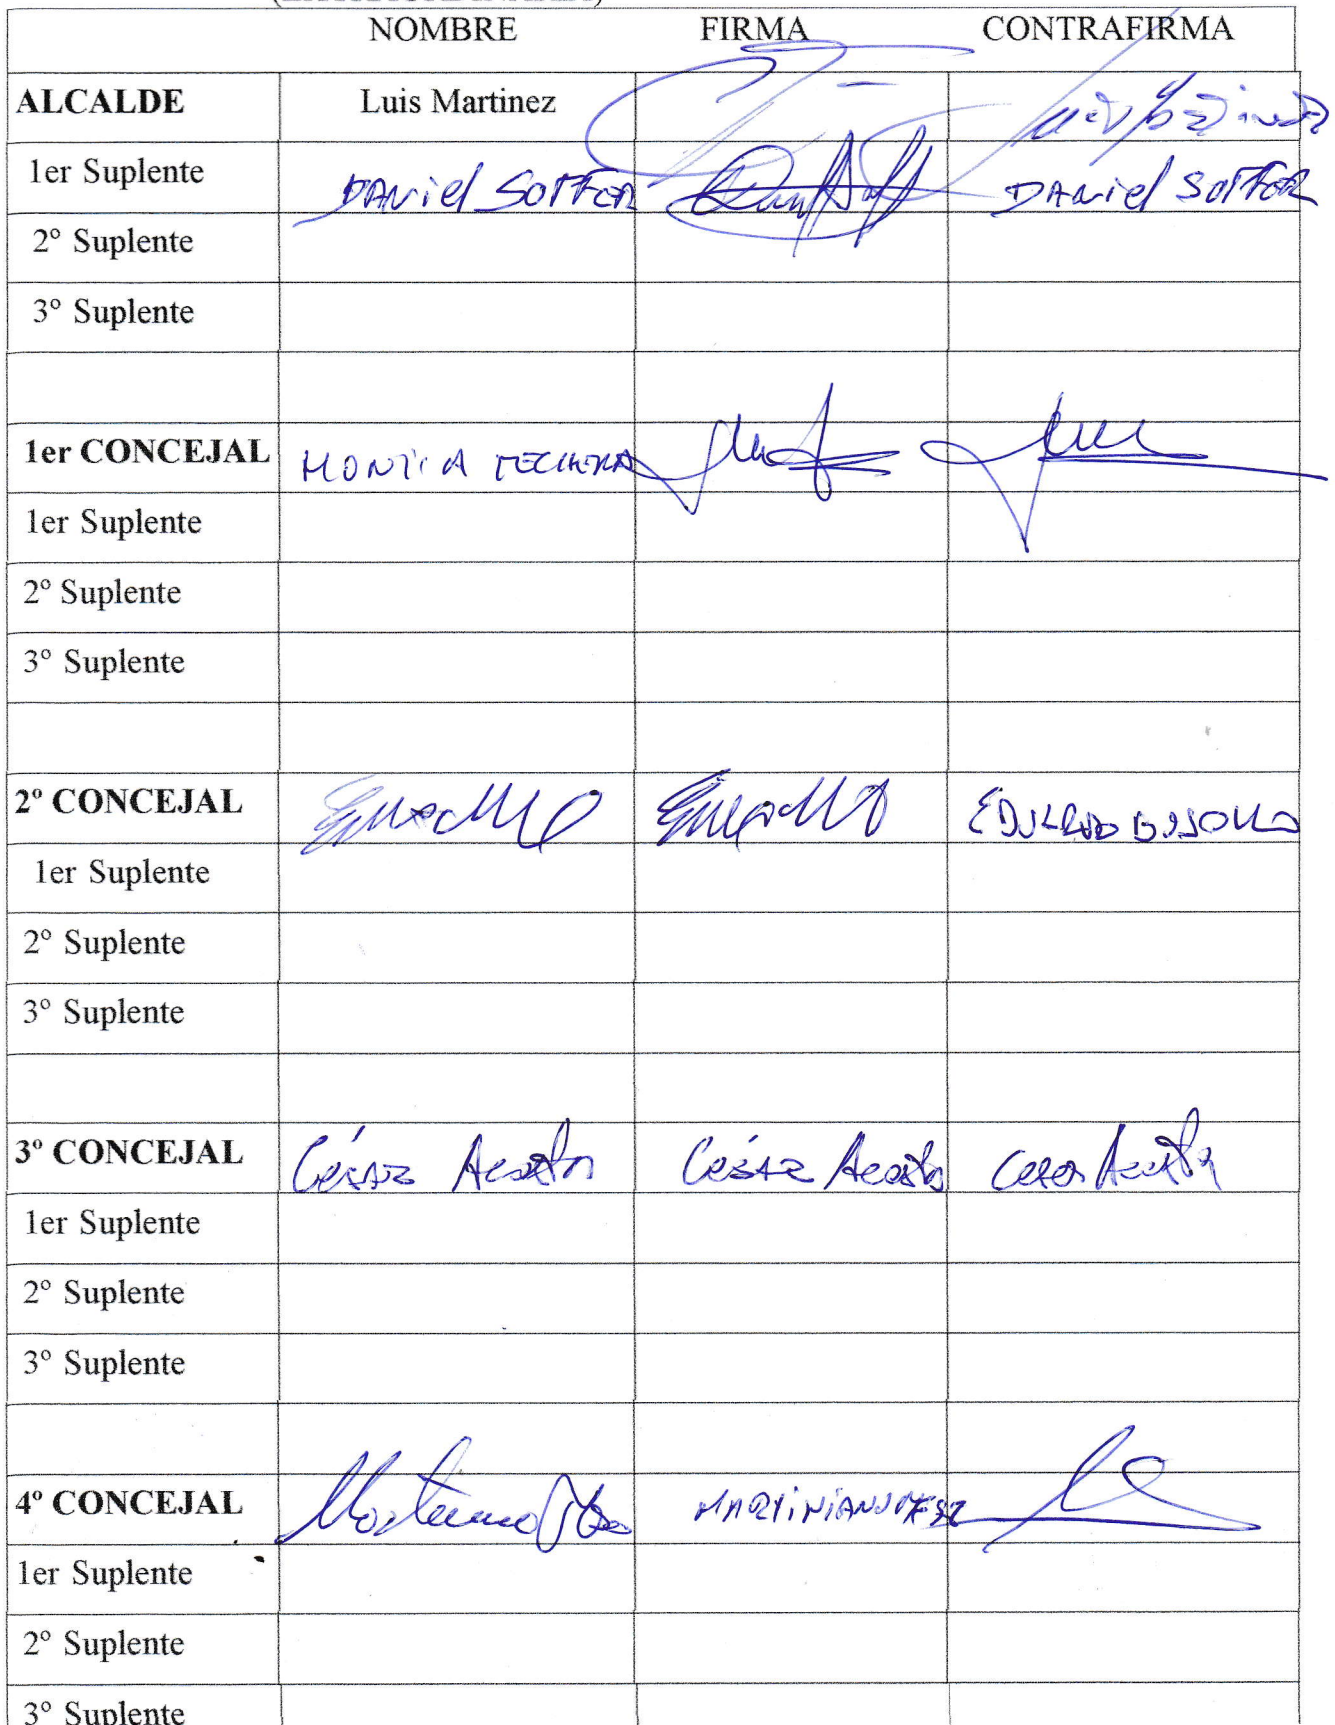 NOMBRE FIRMA CONTRAFIRMA
ALCALDE Luis Martinez
1er Suplente DANiel SOFFER DANiel SOFFER
2º Suplente
3º Suplente
1er CONCEJAL MONICA
1er Suplente
2º Suplente
3º Suplente
2º CONCEJAL EDUARDO
1er Suplente
2º Suplente
3º Suplente
3º CONCEJAL César Acosta César Acosta Cesar Acosta
1er Suplente
2º Suplente
3º Suplente
4º CONCEJAL
1er Suplente
2º Suplente
3º Suplente